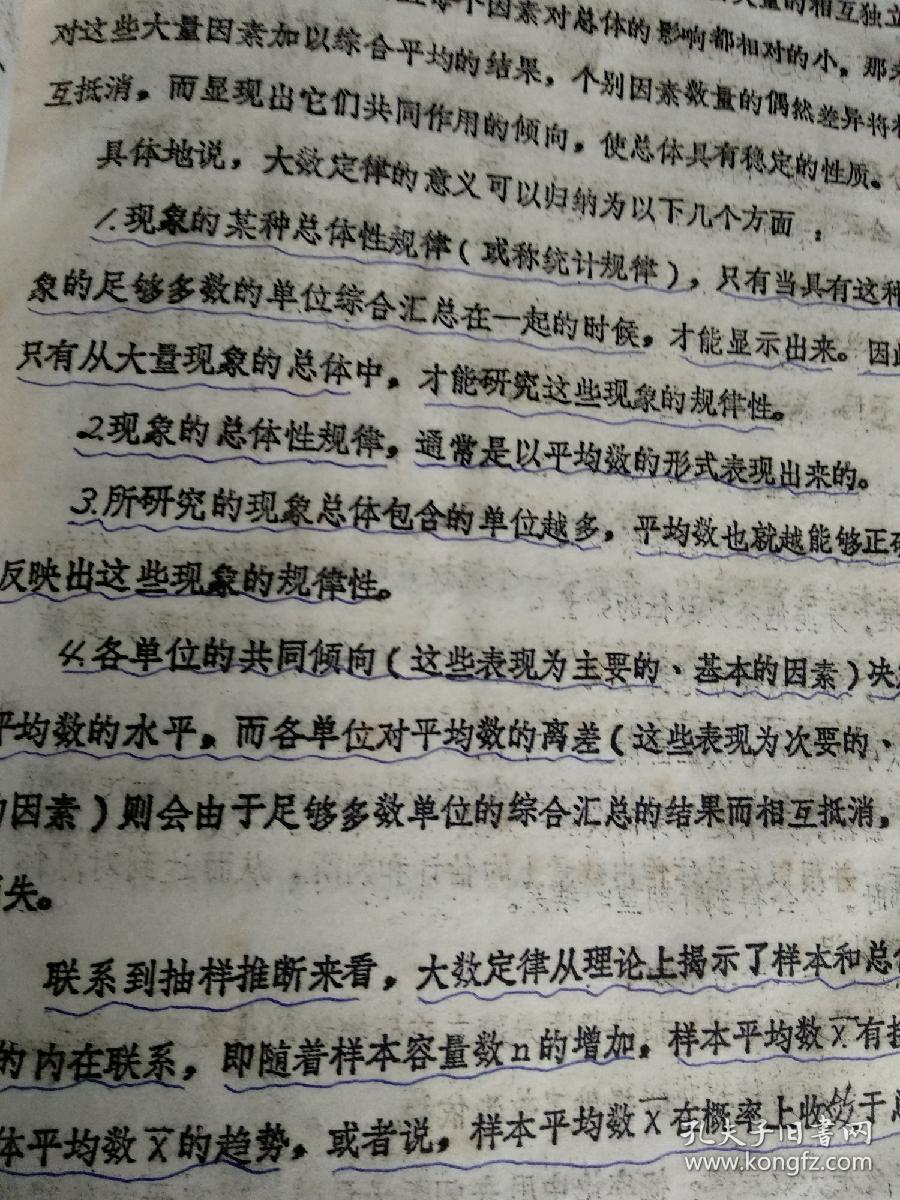 每个因素对总体的影响都相对的小，那
大量的相互独立
对这些大量因素加以综合平均的结果，个别因素数量的偶然差异将
互抵消，而显现出它们共同作用的倾向，使总体具有稳定的性质。
具体地说，大数定律的意义可以归纳为以下几个方面：
1.现象的某种总体性规律（或称统计规律），只有当具有这种
象的足够多数的单位综合汇总在一起的时候，才能显示出来。因
只有从大量现象的总体中，才能研究这些现象的规律性。
2现象的总体性规律，通常是以平均数的形式表现出来的。
3.所研究的现象总体包含的单位越多，平均数也就越能够正
反映出这些现象的规律性。
4.各单位的共同倾向（这些表现为主要的、基本的因素）决
平均数的水平，而各单位对平均数的离差（这些表现为次要的、
因素）则会由于足够多数单位的综合汇总的结果而相互抵消，
失。
联系到抽样推断来看，大数定律从理论上揭示了样本和总
的内在联系，即随着样本容量数n的增加，样本平均数x̄有
体平均数X̄的趋势，或者说，样本平均数x̄在概率上收敛于
孔夫子旧书网
www.kongfz.com